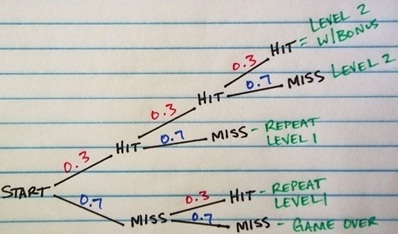 LEVEL 2
W/BONUS
0.3 HIT=
0.7 MISS LEVEL 2
0.3 HIT
0.7 MISS - REPEAT
LEVEL 1
0.3 HIT
START
0.7 MISS
0.3 HIT - REPEAT
LEVEL 1
0.7 MISS - GAME OVER